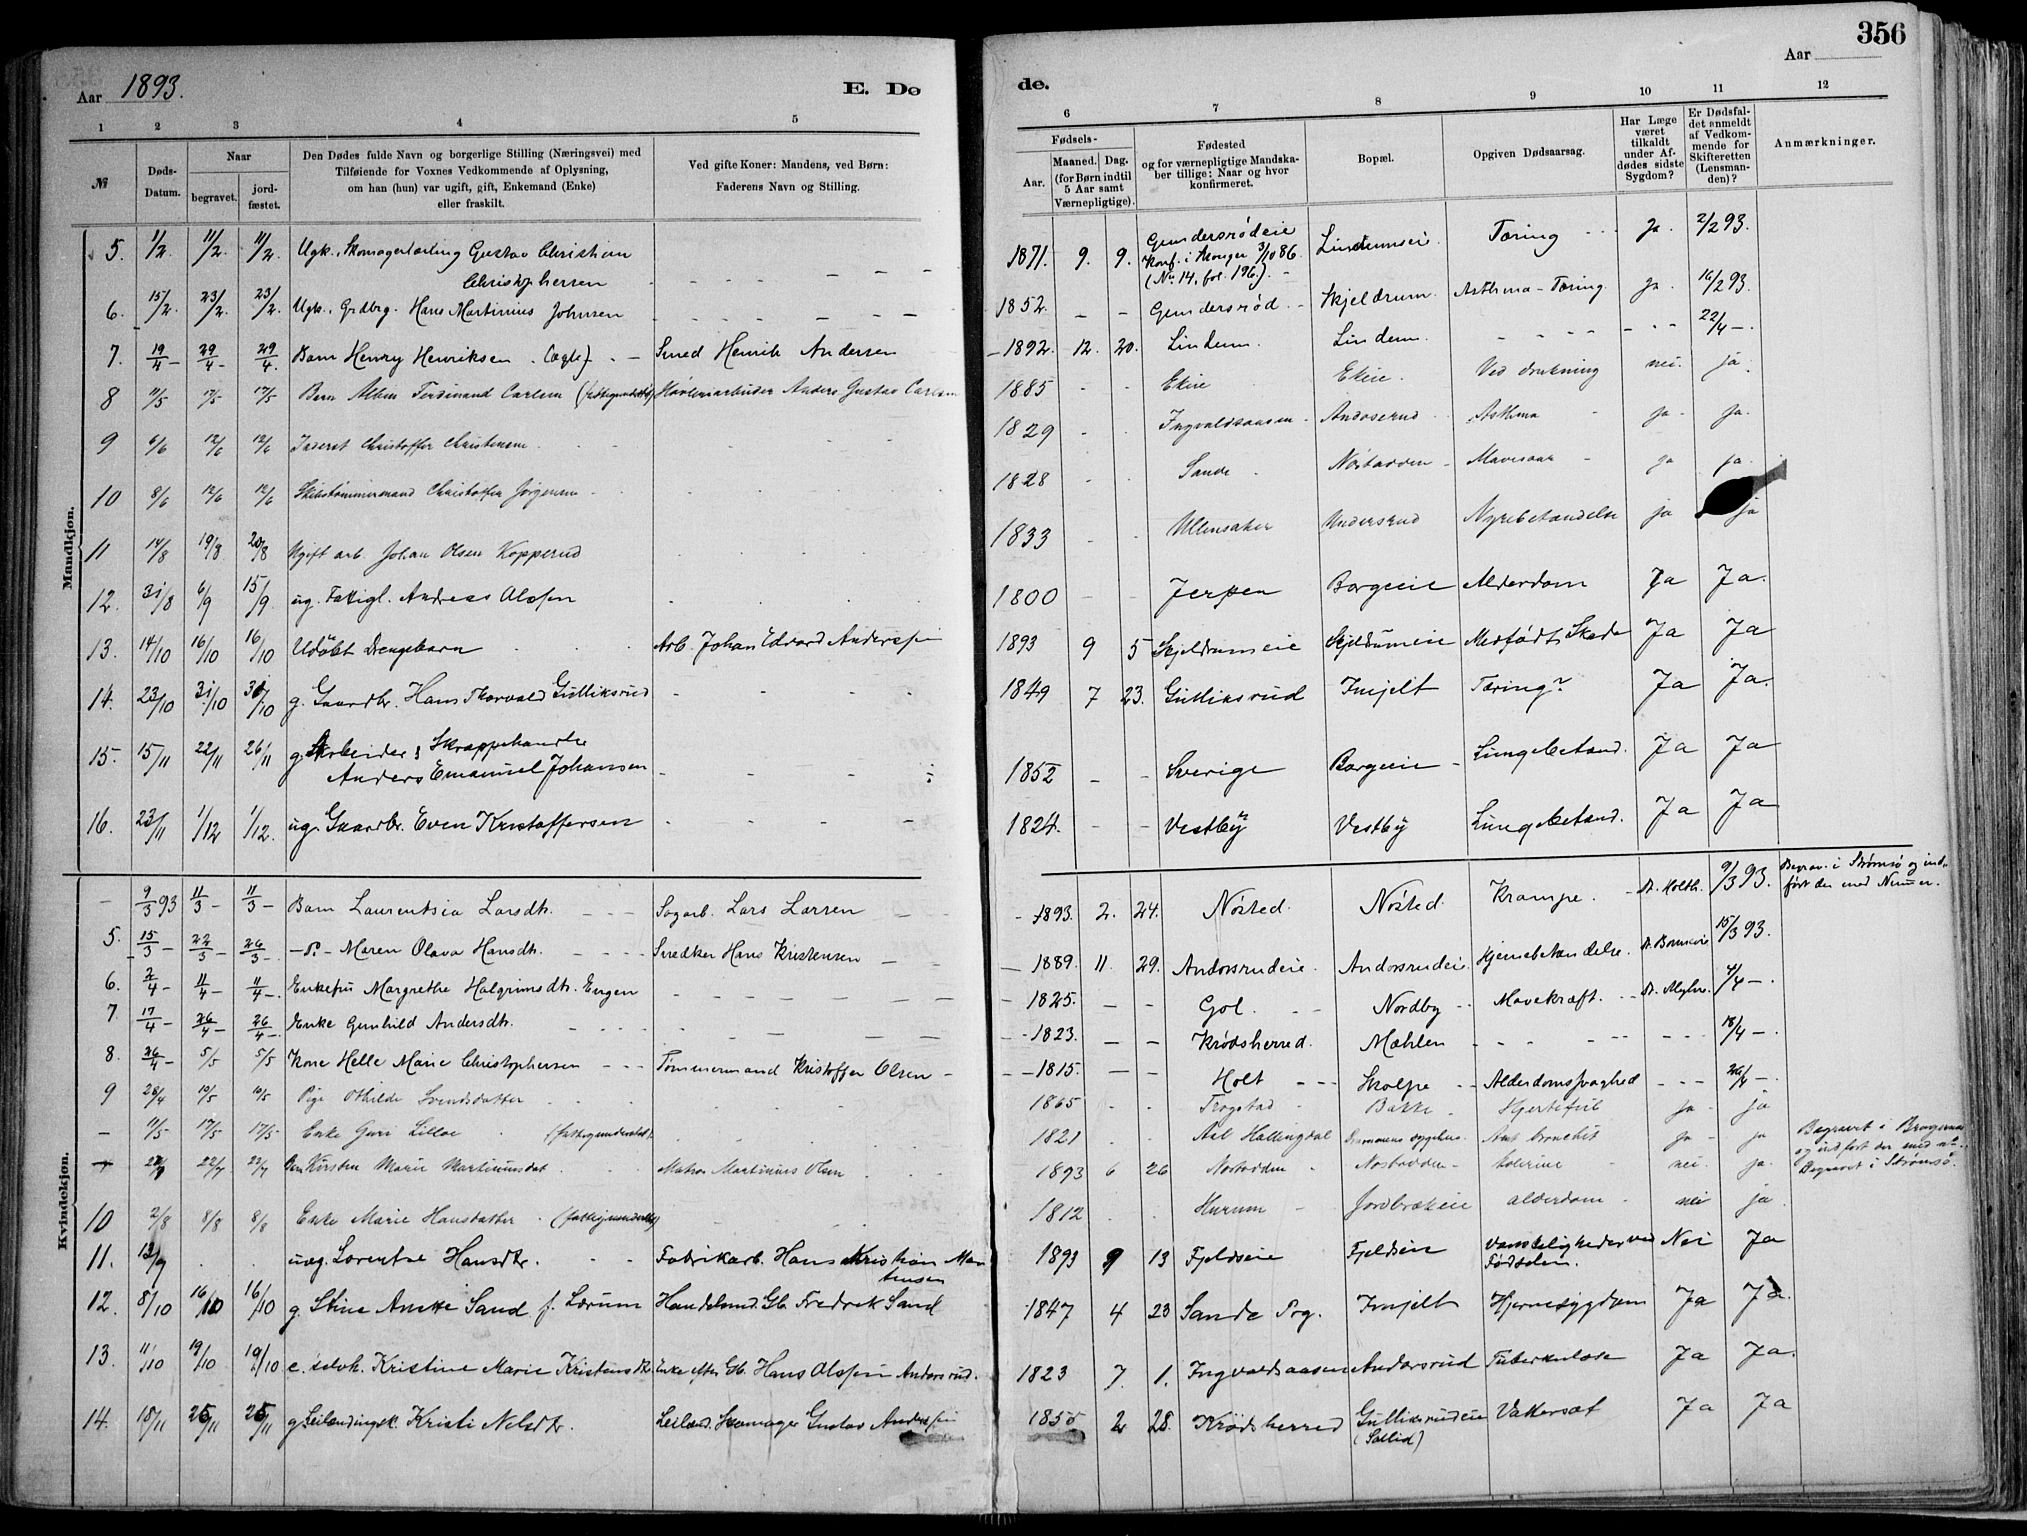 356
Aar 1893.
E. Dø
de.
Aar
1 2 3 4 5
6 7 8 9 10 11 12
№
Døds-Datum.
Naar
begravet.
jord-fæstet.
Den Dødes fulde Navn og borgerlige Stilling (Næringsvei) med
Tilføiende for Voxnes Vedkommende af Oplysning,
om han (hun) var ugift, gift, Enkemand (Enke)
eller fraskilt.
Ved gifte Koner: Mandens, ved Børn:
Faderens Navn og Stilling.
Fødsels-
Aar.
Maaned. Dag.
(for Børn indtil
5 Aar samt
Værnepligtige).
Fødested
og for værnepligtige Mandska-
ber tillige: Naar og hvor
konfirmeret.
Bopæl.
Opgiven Dødsaarsag.
Har Læge
været
tilkaldt
under Af-
dødes sidste
Sygdom?
Er Dødsfal-
det anmeldt
af Vedkom-
mende for
Skifteretten
(Lensman-
den)?
Anmærkninger.
Mandkjøn.
5. 1/2 11/2. 11/2. Ugk. Skomagerlærling Gustav Christian Christophersen 1871. 9. 9. Gundersrødeie Konf. i Monger 3/10 86. (No 14, fol. 196). Lindumseie. Tæring Ja. 2/2 93.
6. 15/2. 23/2. 23/2. Ugk. Grdbrg. Hans Martinius Johnsen 1852. Gundersrød Skjeldrum. Asthma - Tæring. Ja. 16/2 93.
7. 19/4 29/4 29/4. Barn Henry Henriksen (Ægte) Smed Henrik Andersen 1892. 12. 20. Lindum. Lindum. 22/4
8 11/5 17/5 17/5 Barn Albin Ferdinand Carlsen Anders Gustav Carlsen 1885 Ekeie Ekeie. Ved drukning nei. ja.
9 6/6 12/6 12/6 Inderst Christoffer Christensen 1829 Ingvaldsaasen Andorsrud Asthma ja ja.
10 8/6 12/6 12/6 Skibstømmermand Christoffer Jørgensen 1828 Sande Nøstodden Mavesaar ja ja
11 14/8 19/8 20/8 Ugift arb Johan Olsen Kopperud 1833 Ullensaker Undersrud Nyrebetændelse ja ja
12. 31/8 6/9 15/9 ug. Fattigl. Andreas Olsen 1800 Jerpen Borgeie Alderdom Ja Ja.
13. 14/10 16/10 16/10 Udøbt Drengebarn Arb. Johan Edvard Anderssen 1893 9 5 Skjeldrumeie Skjeldrumeie Medfødt Skade Ja Ja
14. 23/10 31/10 31/10 g. Gaardbr. Hans Thorvald Gulliksrud 1849 7 23. Gulliksrud Imjelt Tæring? Ja Ja.
15. 15/11 22/11 26/11 g. Arbeider & Skræppehandler Anders Emanuel Johansen 1852 Sverige Borgeie Lungebetænd. Ja Ja
16. 23/11 1/12 1/12. ug. Gaardbr. Even Kristoffersen 1824. Vestby Vestby Lungebetænd. Ja Ja
Kvindekjøn.
9/3 93 11/3 11/3 Barn Laurentsia Larsdtr. Sagarb. Lars Larsen 1893. 2. 24. Nøsted. Nøsted. Krampe. Dr. Holth. 9/3 93. Begrav. i Strømsø og ind- ført der med Nummer.
5. 15/3 22/3 26/3 Maren Olava Hansdtr. Snedker Hans Kristensen 1889. 11. 29. Andorsrudeie. Andorsrudeie. Hjernebetændelse. 15/3 93.
6. 2/4 11/4 11/4 Enkefru Margrethe Halgrimsdtr. Engen 1825. Gol. Nordby Mavekræft. 4/4
7. 17/4 26/4 26/4 Enke Gunhild Andersdtr. 1823. Krødsherred. Mæhlen 18/4
8. 26/4 5/5 5/5 Kone Helle Marie Christophersen Tømmermand Kristoffer Olsen 1815. Holt Skolpe Alderdomssvaghed 26/4
9 28/4 10/5 10/5 Pige Othilde Svendsdatter 1865 Trøgstad Bakke Hjertefeil ja ja
11/5 17/5 17/5 Enke Guri Lilloe (fattigunderstøt. 1821 Aal Hallingdal Drammens sygehus. bronchit ja ja Begravet i Bragernes og indført der med nr.
22/7 22/7 Barn Kirsten Marie Martiniusdat Matros Martinius Olsen 1893 6 26 Nøstodden Nøstodden kolerine nei ja. Begravet i Strømsø.
10 2/8 8/8 8/8 Enke Marie Hansdatter 1812 Hurum Jordbrækeie alderdom nei ja
11. 12/9 uæg. Lorentse Hansdtr. Fabrikarb. Hans Kristian Martinsen 1893 9 13 Fjeldseie Fjeldseie Vanskeligheder ved Fødselen. Nei Ja
12. 8/10 16/10 16/10 g. Stine Anette Sand f. Lærum Handelsmd. Gb. Fredrek Sand 1847 4 23 Sande Prg. Imjelt Hjernesygdom Ja Ja.
13. 11/10 19/10 19/10 e. selvh. Kristine Marie Kristensdtr. Enke efter Gb. Hans Olssen Andorsrud. 1823 7. 1. Ingvaldsaasen Andorsrud Tuberkulose Ja Ja.
14. 18/11 25/11 25/11 g. Leilændingsk. Kristi Nelsdtr. Leilænd. Skomager Gustav Anderssen 1855 2 28. Krødsherred Gulliksrudeie (Sollid) Vattersot Ja Ja